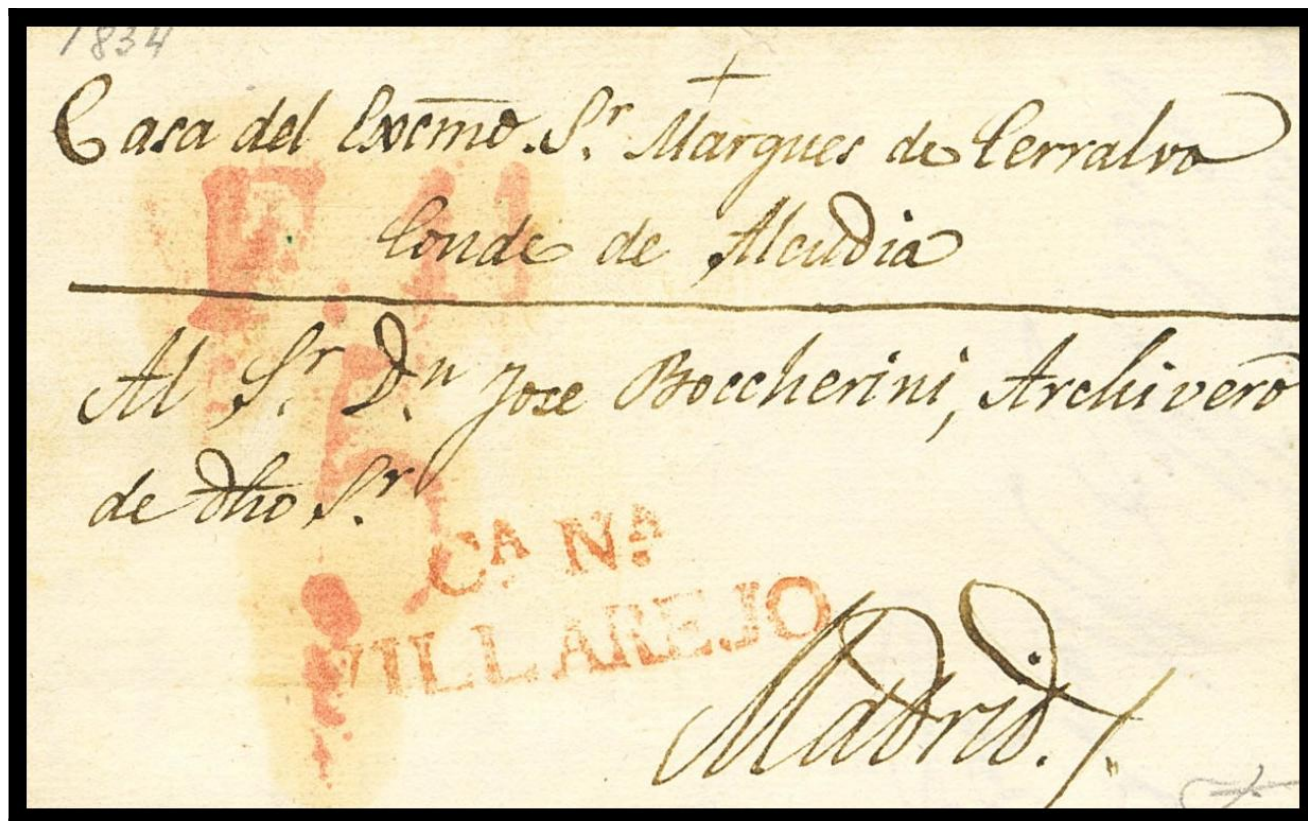 1834
Casa del Excmõ. Sr. Marques de Cerralvo
Conde de Alcudia
Al Sr. Dn. Jose Boccherini, Archivero
de dho Sr.
CA NA
VILLAREJO
Madrid.